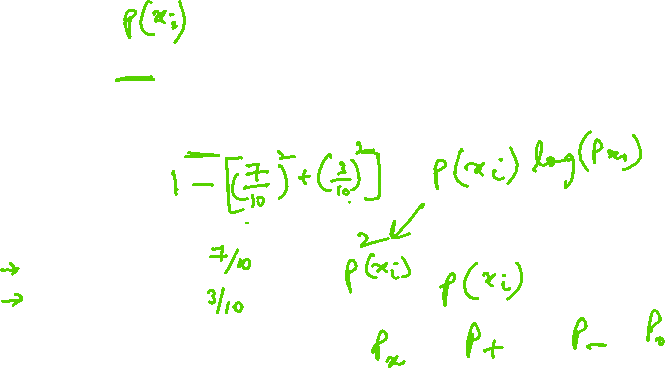 p(xᵢ)
1 - [(7/10)² + (3/10)²] p(xᵢ) log(Pxᵢ)
→ 7/10 p²(xᵢ) p(xᵢ)
→ 3/10
Pₓ P₊ P₋ P₀